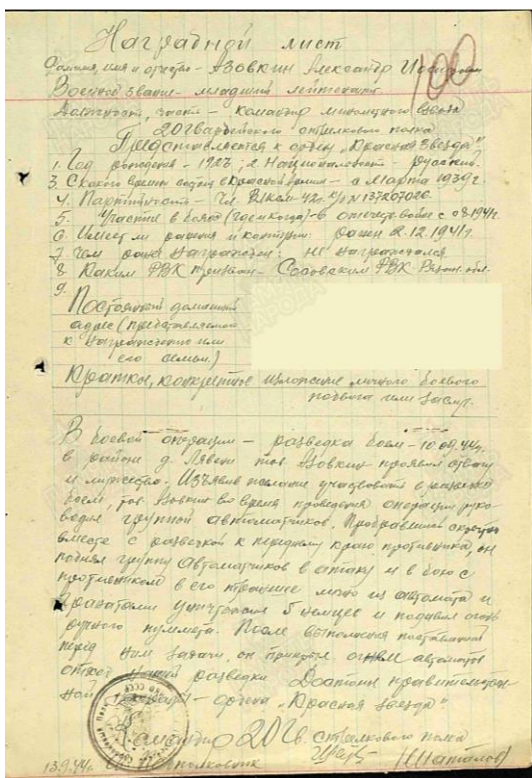 Наградной лист
100
Фамилия, имя и отчество - Азовкин Александр
Военное звание - младший лейтенант
Должность, часть - командир минометного взвода
20 гвардейского стрелкового полка
Представляется к ордену "Красная Звезда"
1. Год рождения - 1923; 2. Национальность - русский.
3. С какого времени состоит в Красной Армии - с марта 1939г.
4. Партийность - Чл. ВЛКСМ - 42г. К/б № 137207026
5. Участие в боях (где и когда) - В отечеств. войне с 08.1941г.
6. Имеет ли ранения и контузии: ранен 2.12.1941г.
7. Чем ранее награжден: не награждался
8. Каким РВК призван - РВК Рязан. обл.
9.
Постоянный домашний
адрес (представляемого
к награждению или
его семьи.)
Краткое, конкретное изложение личного боевого
подвига или заслуг.
В боевой операции - разведка боем - 10.09.44г.
в районе д. тов. Азовкин проявил отвагу
и мужество. Изъявив желание участвовать в разведке
боем, тов. Азовкин во время проведения операции руко-
водил группой автоматчиков. Пробравшись скрытно
вместе с разведкой к переднему краю противника, он
поднял группу автоматчиков в атаку и в бою с
противником в его траншее лично из автомата и
гранатами уничтожил 5 немцев и подавил огонь
ручного пулемета. После выполнения поставленной
перед ним задачи, он прикрыл огнем автомата
отход нашей разведки. Достоин правительствен-
ной награды - ордена "Красная Звезда"
Командир 20 Гв. стрелкового полка
13.9.44г. Гв. подполковник